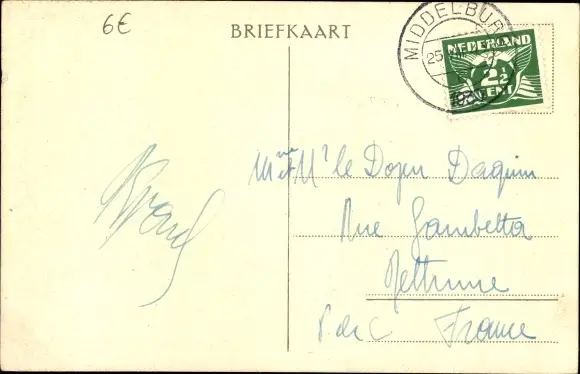 6€
BRIEFKAART
MIDDELBURG
25
NEDERLAND
2½
CENT
Mme et Mr le Doyen Daquin
Rue Gambetta
Bethune
P. de C France